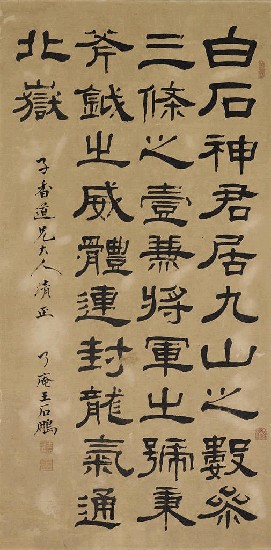 白石神君居九山之數參
三條之壹兼將軍之號秉
斧鉞之威體連封龍氣通
北嶽
子香道兄大人清正
了庵王石鵬